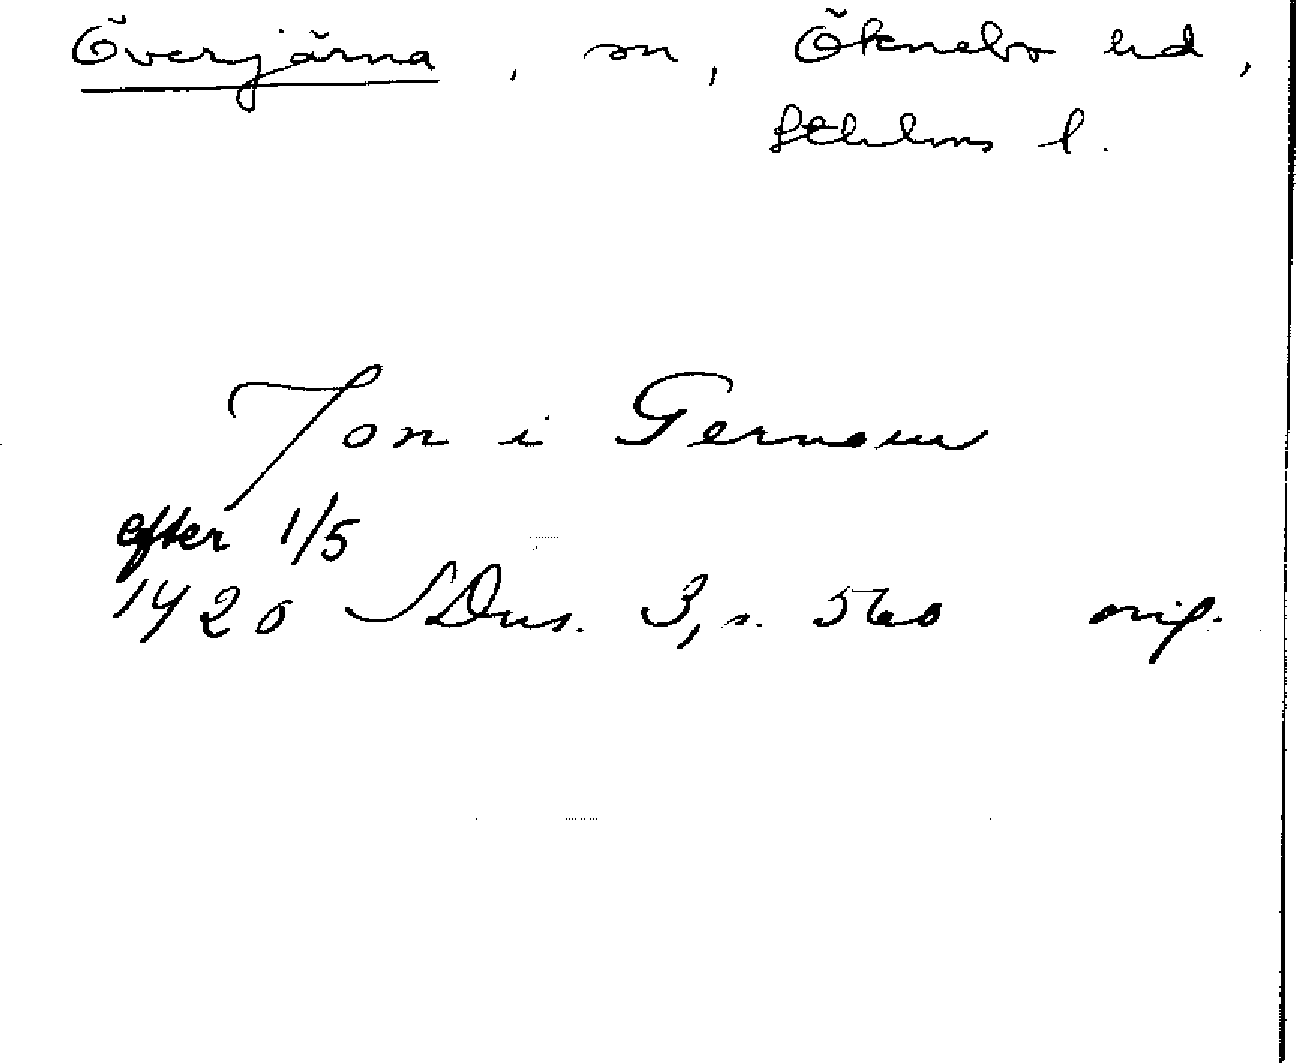 Överjärna, sn, Öknebo hd,
Sthlms l.
Jon i Gernom
efter 1/5
1420 SDns. 3, s. 560 orig.